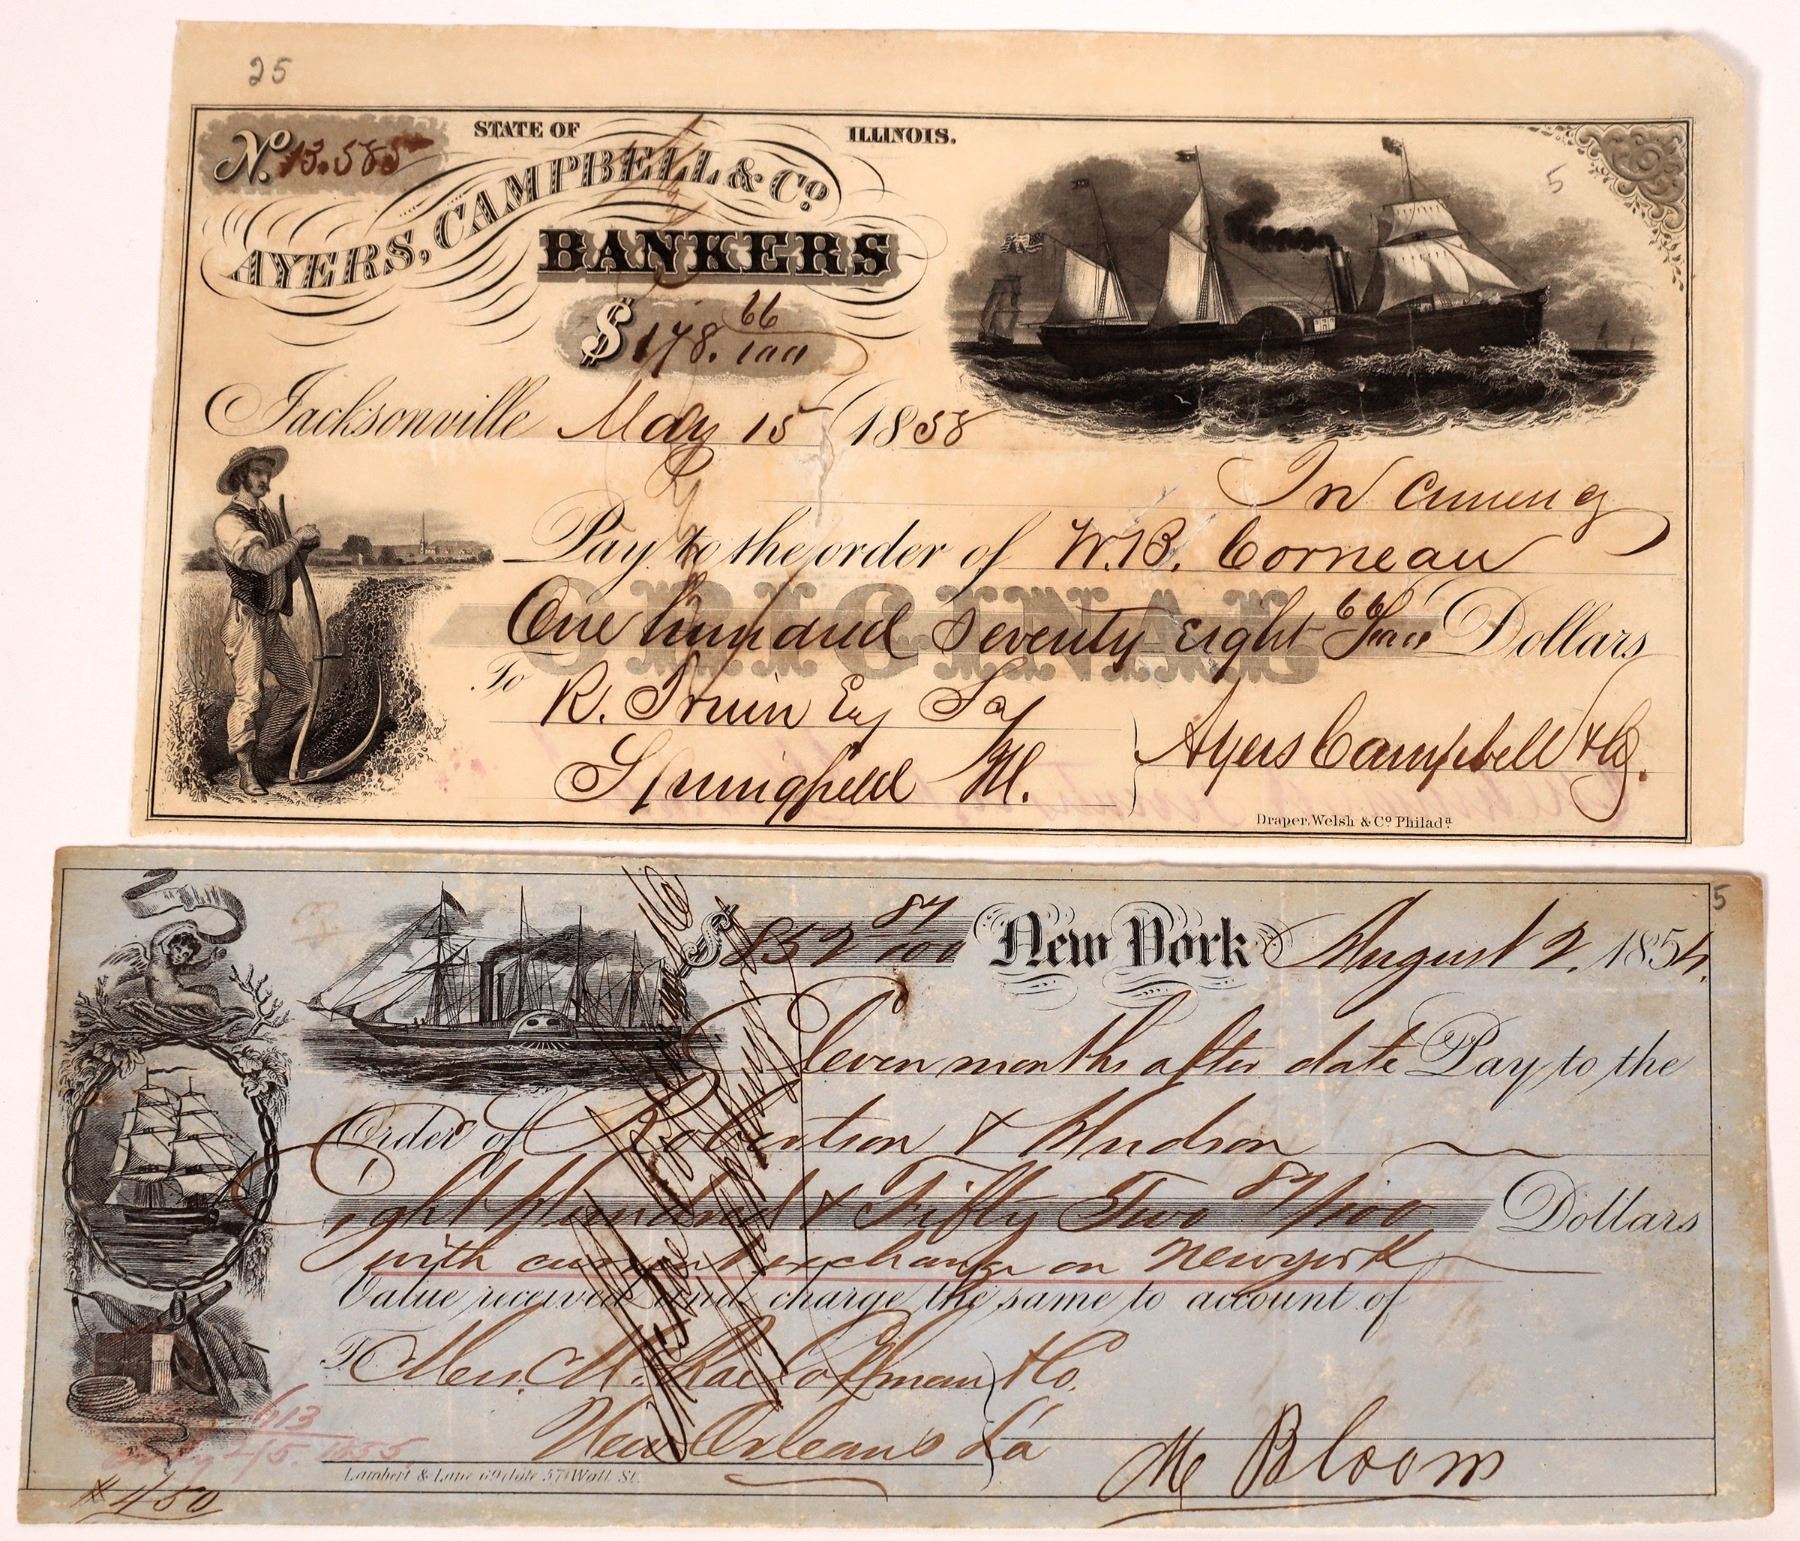 25
No. 13.585
STATE OF ILLINOIS.
AYERS, CAMPBELL & Co.
BANKERS
5
$ 178. 66/100
Jacksonville May 15 1858
In Curreny
Pay to the order of W.B. Corneau
One hundred Seventy eight 66/100 Dollars
ORIGINAL
To R. Irwin Esq
Springfield Ill.
Ayers Campbell & Co.
Draper, Welsh & Co. Philada.
5
$ 852 87/100 New York August 2. 1854.
Eleven months after date Pay to the
Order of Robertson & Hudson
Eight Hundred & Fifty Two 87/100 Dollars
with current exchange on New york
Value received and charge the same to account of
To Mess. McRae Coffman & Co.
New Orleans La
M Bloom
613
5. 1855
Lambert & Lane 69 (late 57) Wall St.
# 450